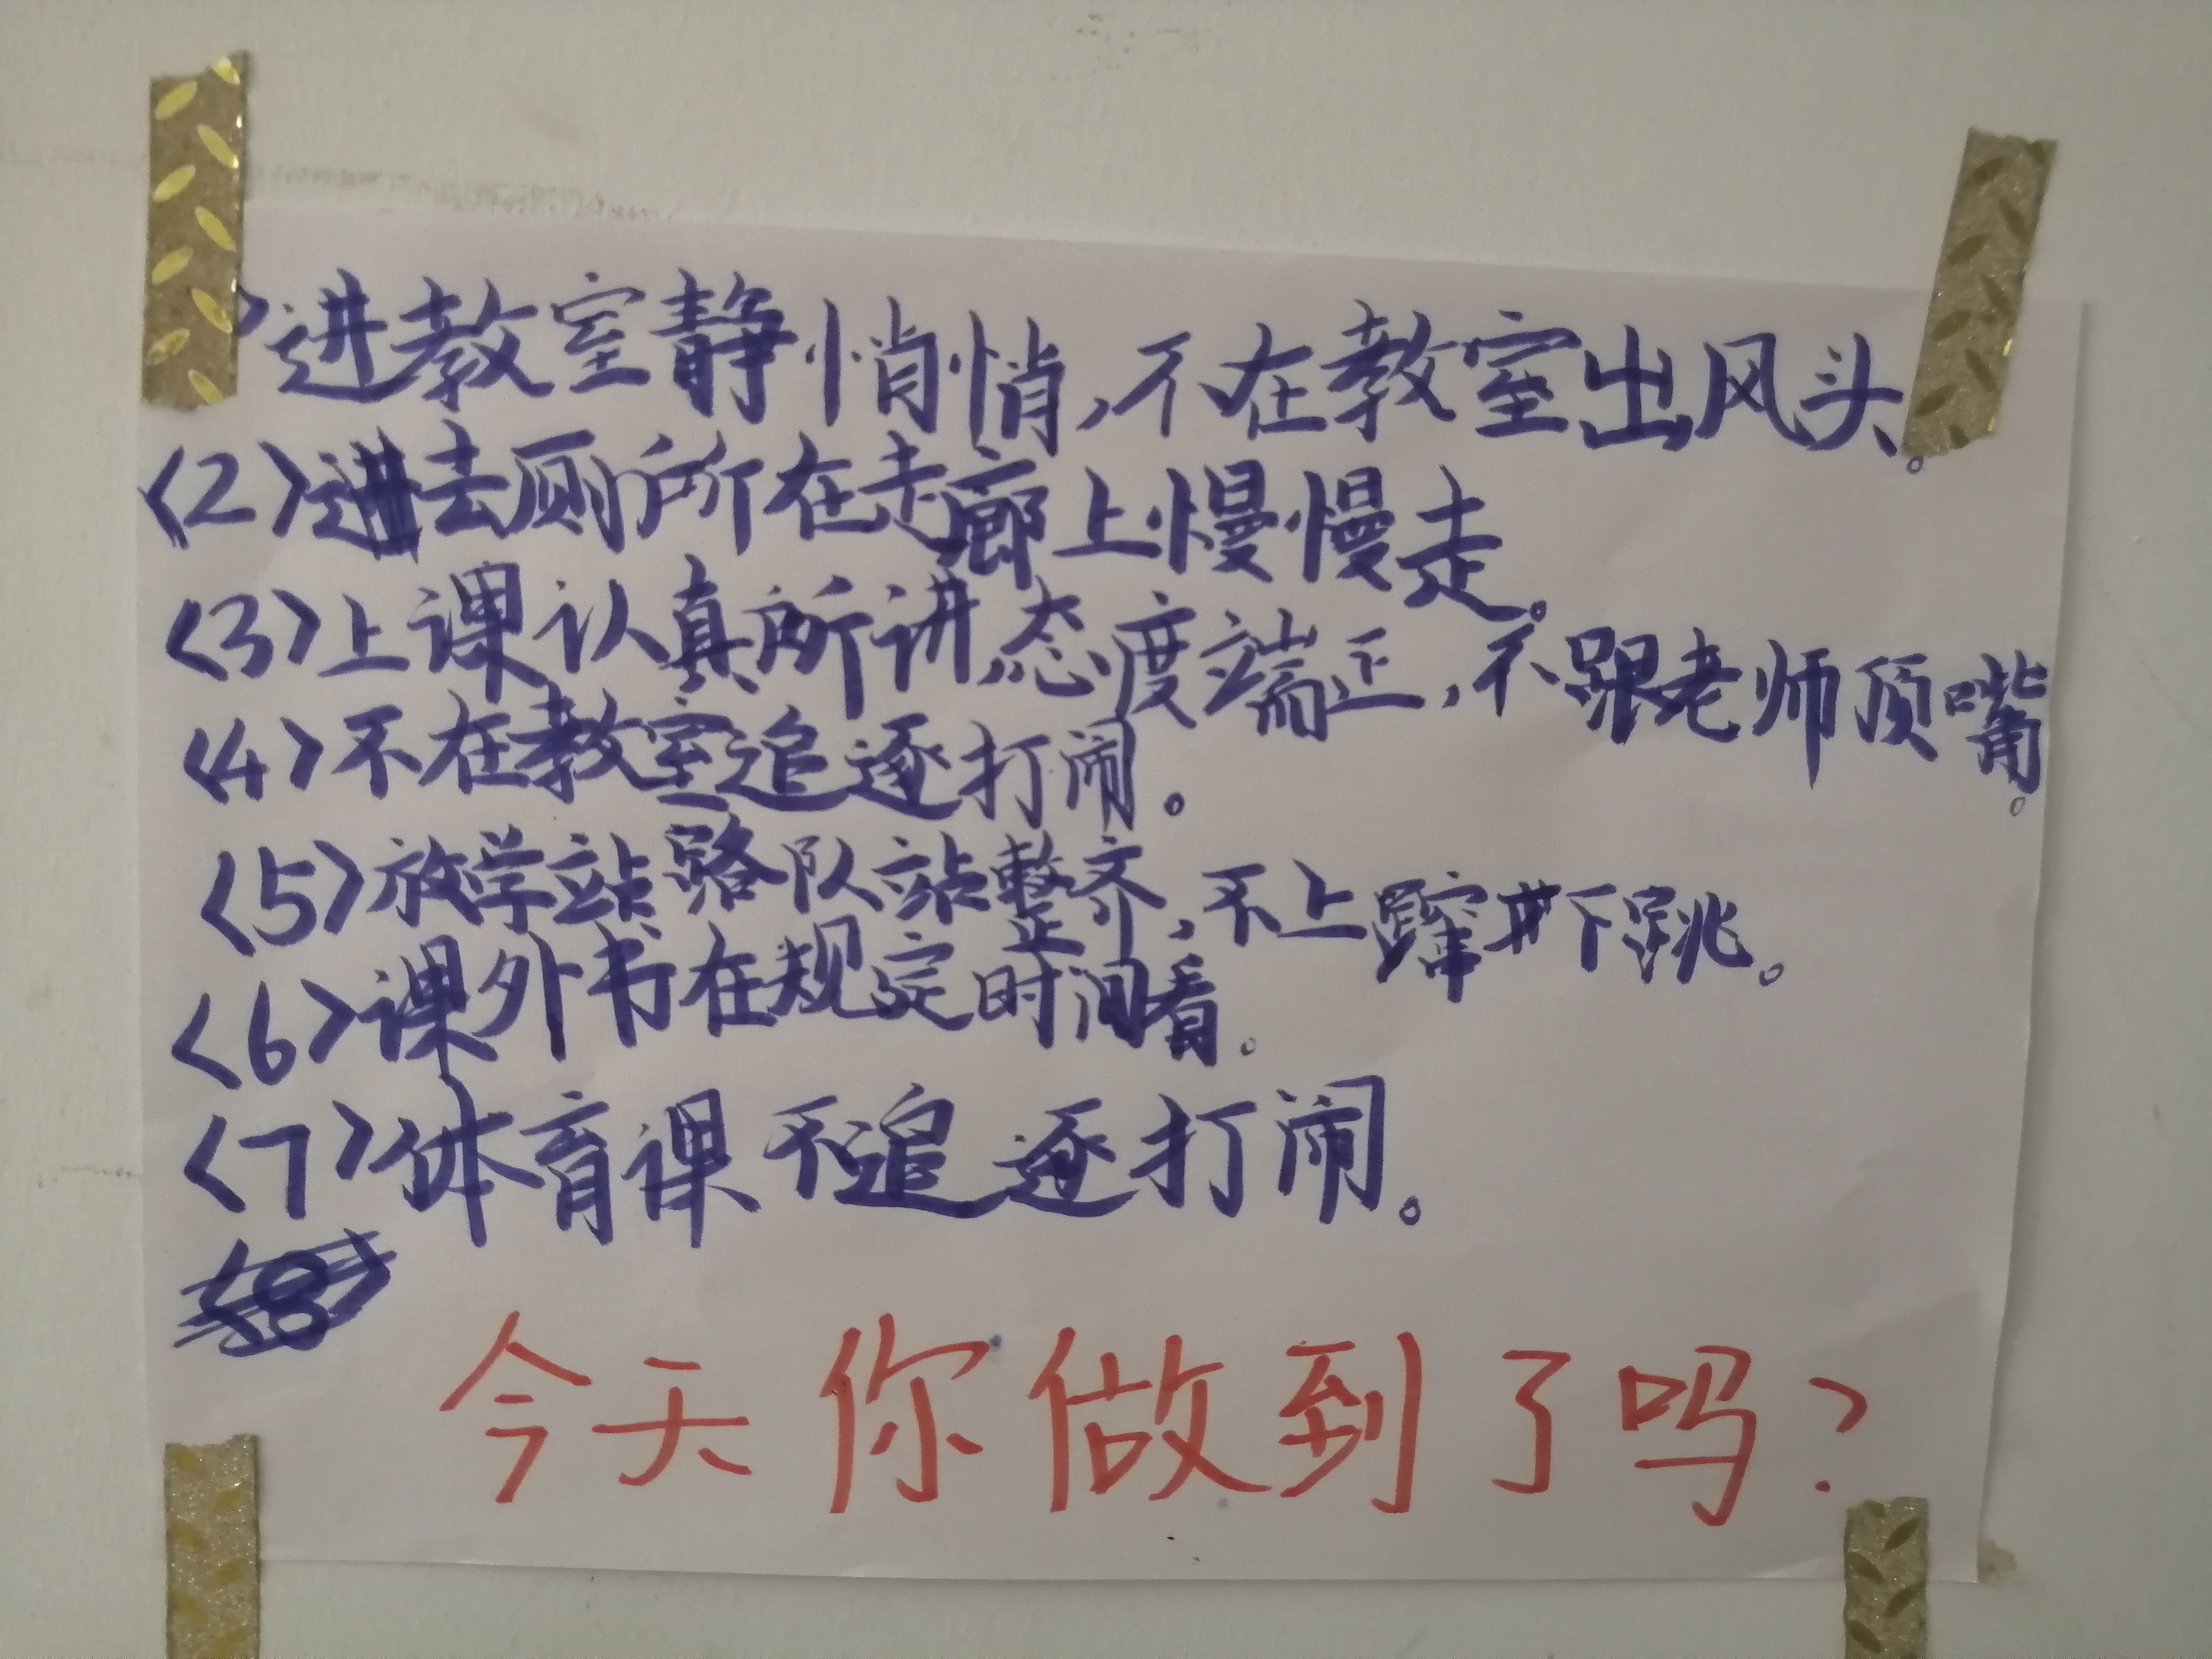 〉进教室静悄悄,不在教室出风头。
〈2〉进去厕所在走廊上慢慢走。
〈3〉上课认真所讲,态度端正,不跟老师顶嘴。
〈4〉不在教室追逐打闹。
〈5〉放学站路队站整齐,不上蹿下跳。
〈6〉课外书在规定时间看。
〈7〉体育课不追逐打闹。
今天你做到了吗?